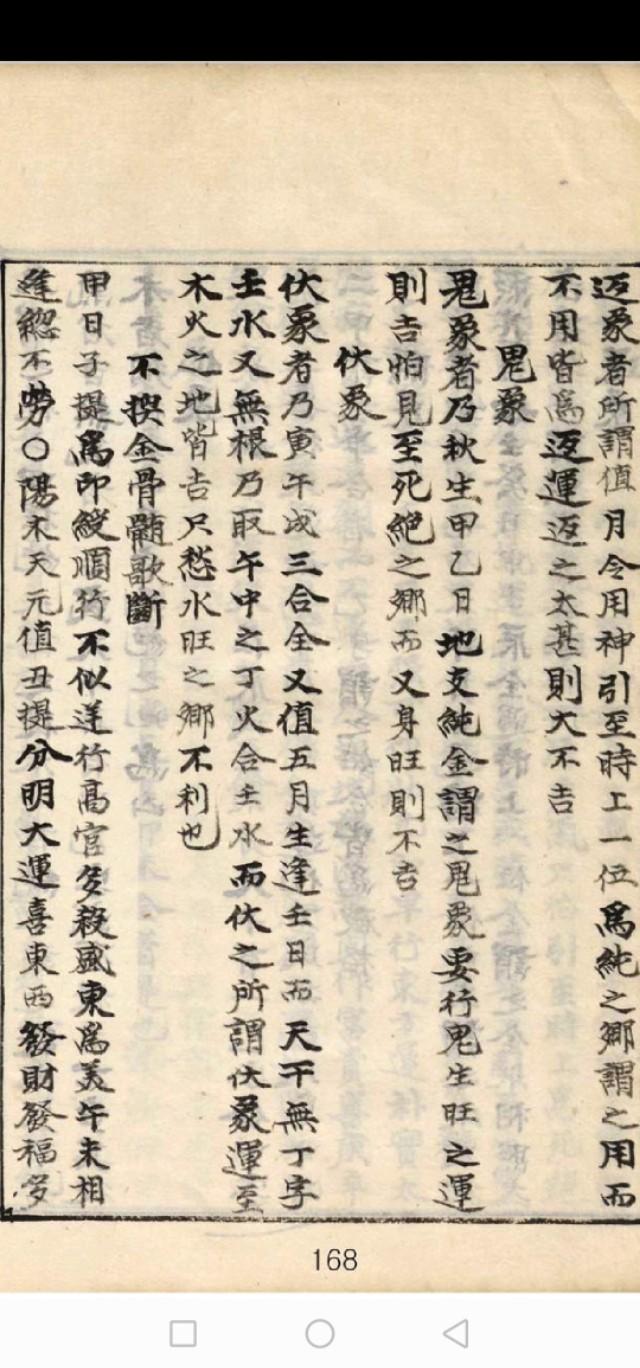 返象者所謂值月令用神引至時上一位爲純之鄉謂之用而
不用皆爲返運返之太甚則大不吉
鬼象
鬼象者乃秋生甲乙日地支純金謂之鬼象要行鬼生旺之運
則吉怕見至死絕之鄉而又身旺則不吉
伏象
伏象者乃寅午戌三合全又值五月生逢壬日而天干無丁字
壬水又無根乃取午中之丁火合壬水而伏之所謂伏象運至
木火之地皆吉只愁水旺之鄉不利也
不換金骨髓歌斷
甲日子提爲印綬順行不似逆行高官多殺盛東爲美午未相
逢緫不勞○陽木天元值丑提分明大運喜東西發財發福多
168